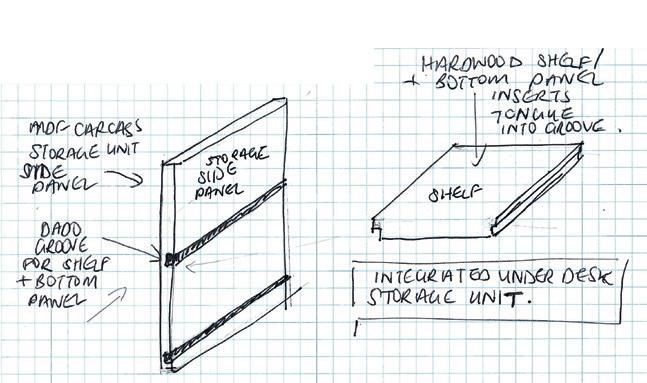 HARDWOOD SHELF/
+ BOTTOM PANEL
INSERTS
TONGUE
INTO GROOVE.
MDF CARCASS
STORAGE UNIT
SIDE
PANEL
STORAGE
SIDE
PANEL
SHELF
DADO
GROOVE
FOR SHELF
+ BOTTOM
PANEL
INTEGRATED UNDER DESK
STORAGE UNIT.